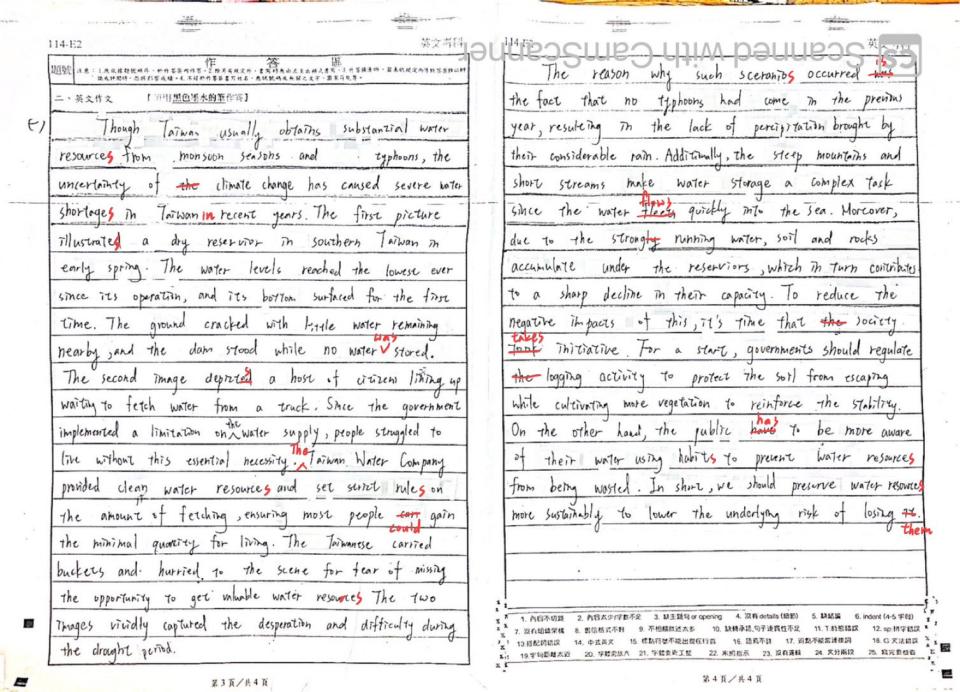 114-E2
英文考科
作答區
題號
二、英文作文
(一)
Though Taiwan usually obtains substantial water
resources from monsoon seasons and typhoons, the
uncertainty of the climate change has caused severe water
shortages in Taiwan in recent years. The first picture
illustrated a dry reservior in southern Taiwan in
early spring. The water levels reached the lowest ever
since its operation, and its bottom surfaced for the first
time. The ground cracked with little water remaining
nearby, and the dam stood while no water was stored.
The second image depicted a host of citizens lining up
waiting to fetch water from a truck. Since the government
implemented a limitation on the water supply, people struggled to
live without this essential necessity. The Taiwan Water Company
provided clean water resources and set strict rules on
the amount of fetching, ensuring most people can could gain
the minimal quantity for living. The Taiwanese carried
buckets and hurried to the scene for fear of missing
the opportunity to get valuable water resources The two
images vividly captured the desperation and difficulty during
the drought period.
第3頁/共4頁
114-E2
Scanned with CamScanner
The reason why such sceranios occurred was is
the fact that no typhoons had come in the previous
year, resulting in the lack of percipitation brought by
their considerable rain. Additionally, the steep mountains and
short streams make water storage a complex task
since the water flows quickly into the sea. Moreover,
due to the strongly running water, soil and rocks
accumulate under the reserviors, which in turn contributes
to a sharp decline in their capacity. To reduce the
negative impacts of this, it's time that the society
took takes initiative. For a start, governments should regulate
the logging activity to protect the soil from escaping
while cultivating more vegetation to reinforce the stability.
On the other hand, the public have has to be more aware
of their water using habits to prevent water resources
from being wasted. In short, we should preserve water resources
more sustainably to lower the underlying risk of losing it. them
1. 內容不切題 2. 內容太少/字數不足 3. 缺主題句or opening 4. 沒有details (細節) 5. 缺結論 6. indent (4-5 字母)
13. 搭配詞錯誤 14. 中式英文
19. 字句距離太近
第4頁/共4頁